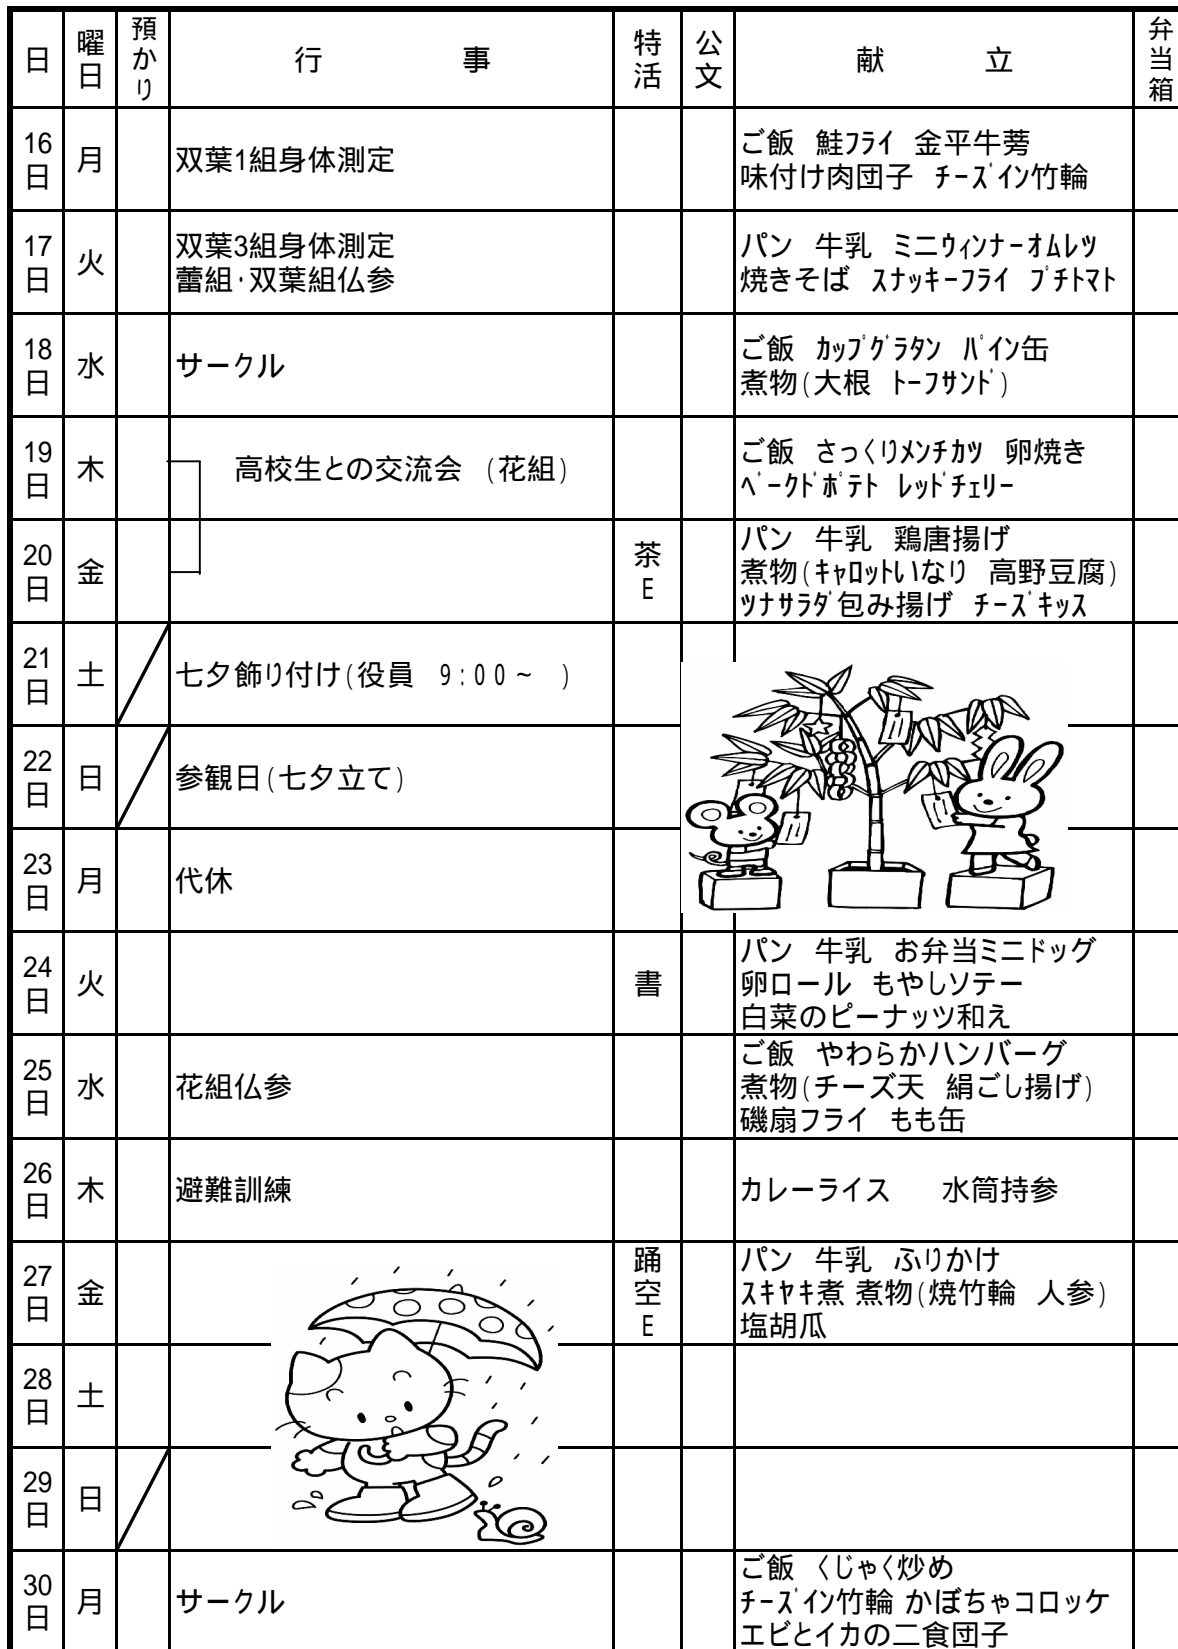 日 曜日 預かり 行 事 特活 公文 献 立 弁当箱
16日 月 双葉1組身体測定 ご飯 鮭フライ 金平牛蒡
味付け肉団子 チーズイン竹輪
17日 火 双葉3組身体測定 パン 牛乳 ミニウィンナーオムレツ
蕾組・双葉組仏参 焼きそば スナッキーフライ プチトマト
18日 水 サークル ご飯 カップグラタン パイン缶
煮物(大根 トーフサンド)
19日 木 高校生との交流会 (花組) ご飯 さっくりメンチカツ 卵焼き
ベークドポテト レッドチェリー
20日 金 茶E パン 牛乳 鶏唐揚げ
煮物(キャロットいなり 高野豆腐)
ツナサラダ包み揚げ チーズキッス
21日 土 七夕飾り付け(役員 9:00~ )
22日 日 参観日(七夕立て)
23日 月 代休
24日 火 書 パン 牛乳 お弁当ミニドッグ
卵ロール もやしソテー
白菜のピーナッツ和え
25日 水 花組仏参 ご飯 やわらかハンバーグ
煮物(チーズ天 絹ごし揚げ)
磯扇フライ もも缶
26日 木 避難訓練 カレーライス 水筒持参
27日 金 踊空E パン 牛乳 ふりかけ
スキヤキ煮 煮物(焼竹輪 人参)
塩胡瓜
28日 土
29日 日
30日 月 サークル ご飯 くじゃく炒め
チーズイン竹輪 かぼちゃコロッケ
エビとイカの二食団子